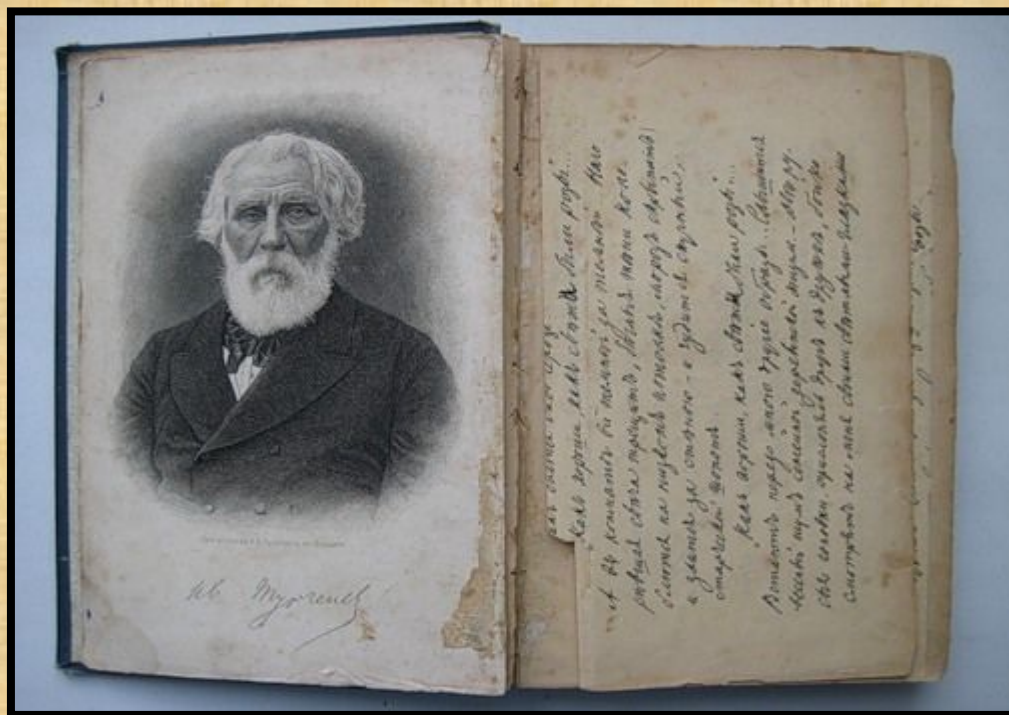 Ив. Тургенев
Какъ хороши, какъ свѣжи были розы...
А въ комнатѣ всё темнѣй да темнѣй Наго
рѣвшая свѣча трещитъ, бѣглыя тѣни коле
блются на низкомъ потолкѣ, морозъ скрипитъ
и злится за стѣною - и чудится скучный,
старческій шопотъ
Какъ хороши, какъ свѣжи были розы...
Встаютъ передо мною другіе образы... Слышится
веселый шумъ семейной деревенской жизни. - Двѣ ру
сыя головки, прислонясь другъ къ дружкѣ, бойко
смотрятъ на меня своими свѣтлыми глазками